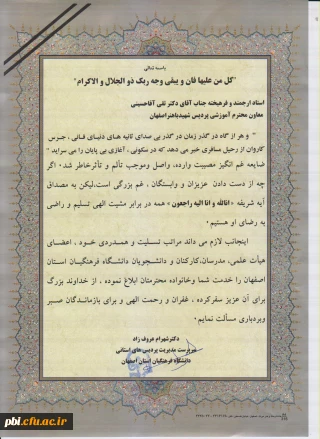 باسمه تعالی
"کل من علیها فان و یبقی وجه ربک ذو الجلال و الاکرام"
استاد ارجمند و فرهیخته جناب آقای دکتر تقی آقاحسینی
معاون محترم آموزشی پردیس شهیدباهنراصفهان
" و هر از گاه در گذر زمان در گذر بی صدای ثانیه های دنیای فانی، جرس
کاروان از رحیل مسافری خبر می دهد که در سکونی، آغازی بی پایان را می سراید "
ضایعه غم انگیز مصیبت وارده، واصل وموجب تألم و تأثرخاطر شد؛ اگر
چه از دست دادن عزیزان و وابستگان ، غم بزرگی است.لیکن به مصداق
آیه شریفه «اناالله و انا الیه راجعون» همه در برابر مشیت الهی تسلیم و راضی
به رضای او هستیم.
اینجانب لازم می داند مراتب تسلیت و همدردی خود ، اعضای
هیأت علمی، مدرسان،کارکنان و دانشجویان دانشگاه فرهنگیان استان
اصفهان را خدمت شما وخانواده محترمتان ابلاغ نموده ، از خداوند بزرگ
برای آن عزیز سفرکرده ، غفران و رحمت الهی و برای بازماندگان صبر
وبردباری مسألت نمایم.
دکترشهرام عروف زاد
سرپرست مدیریت پردیس های استانی
دانشگاه فرهنگیان استان اصفهان
pbi.cfu.ac.ir